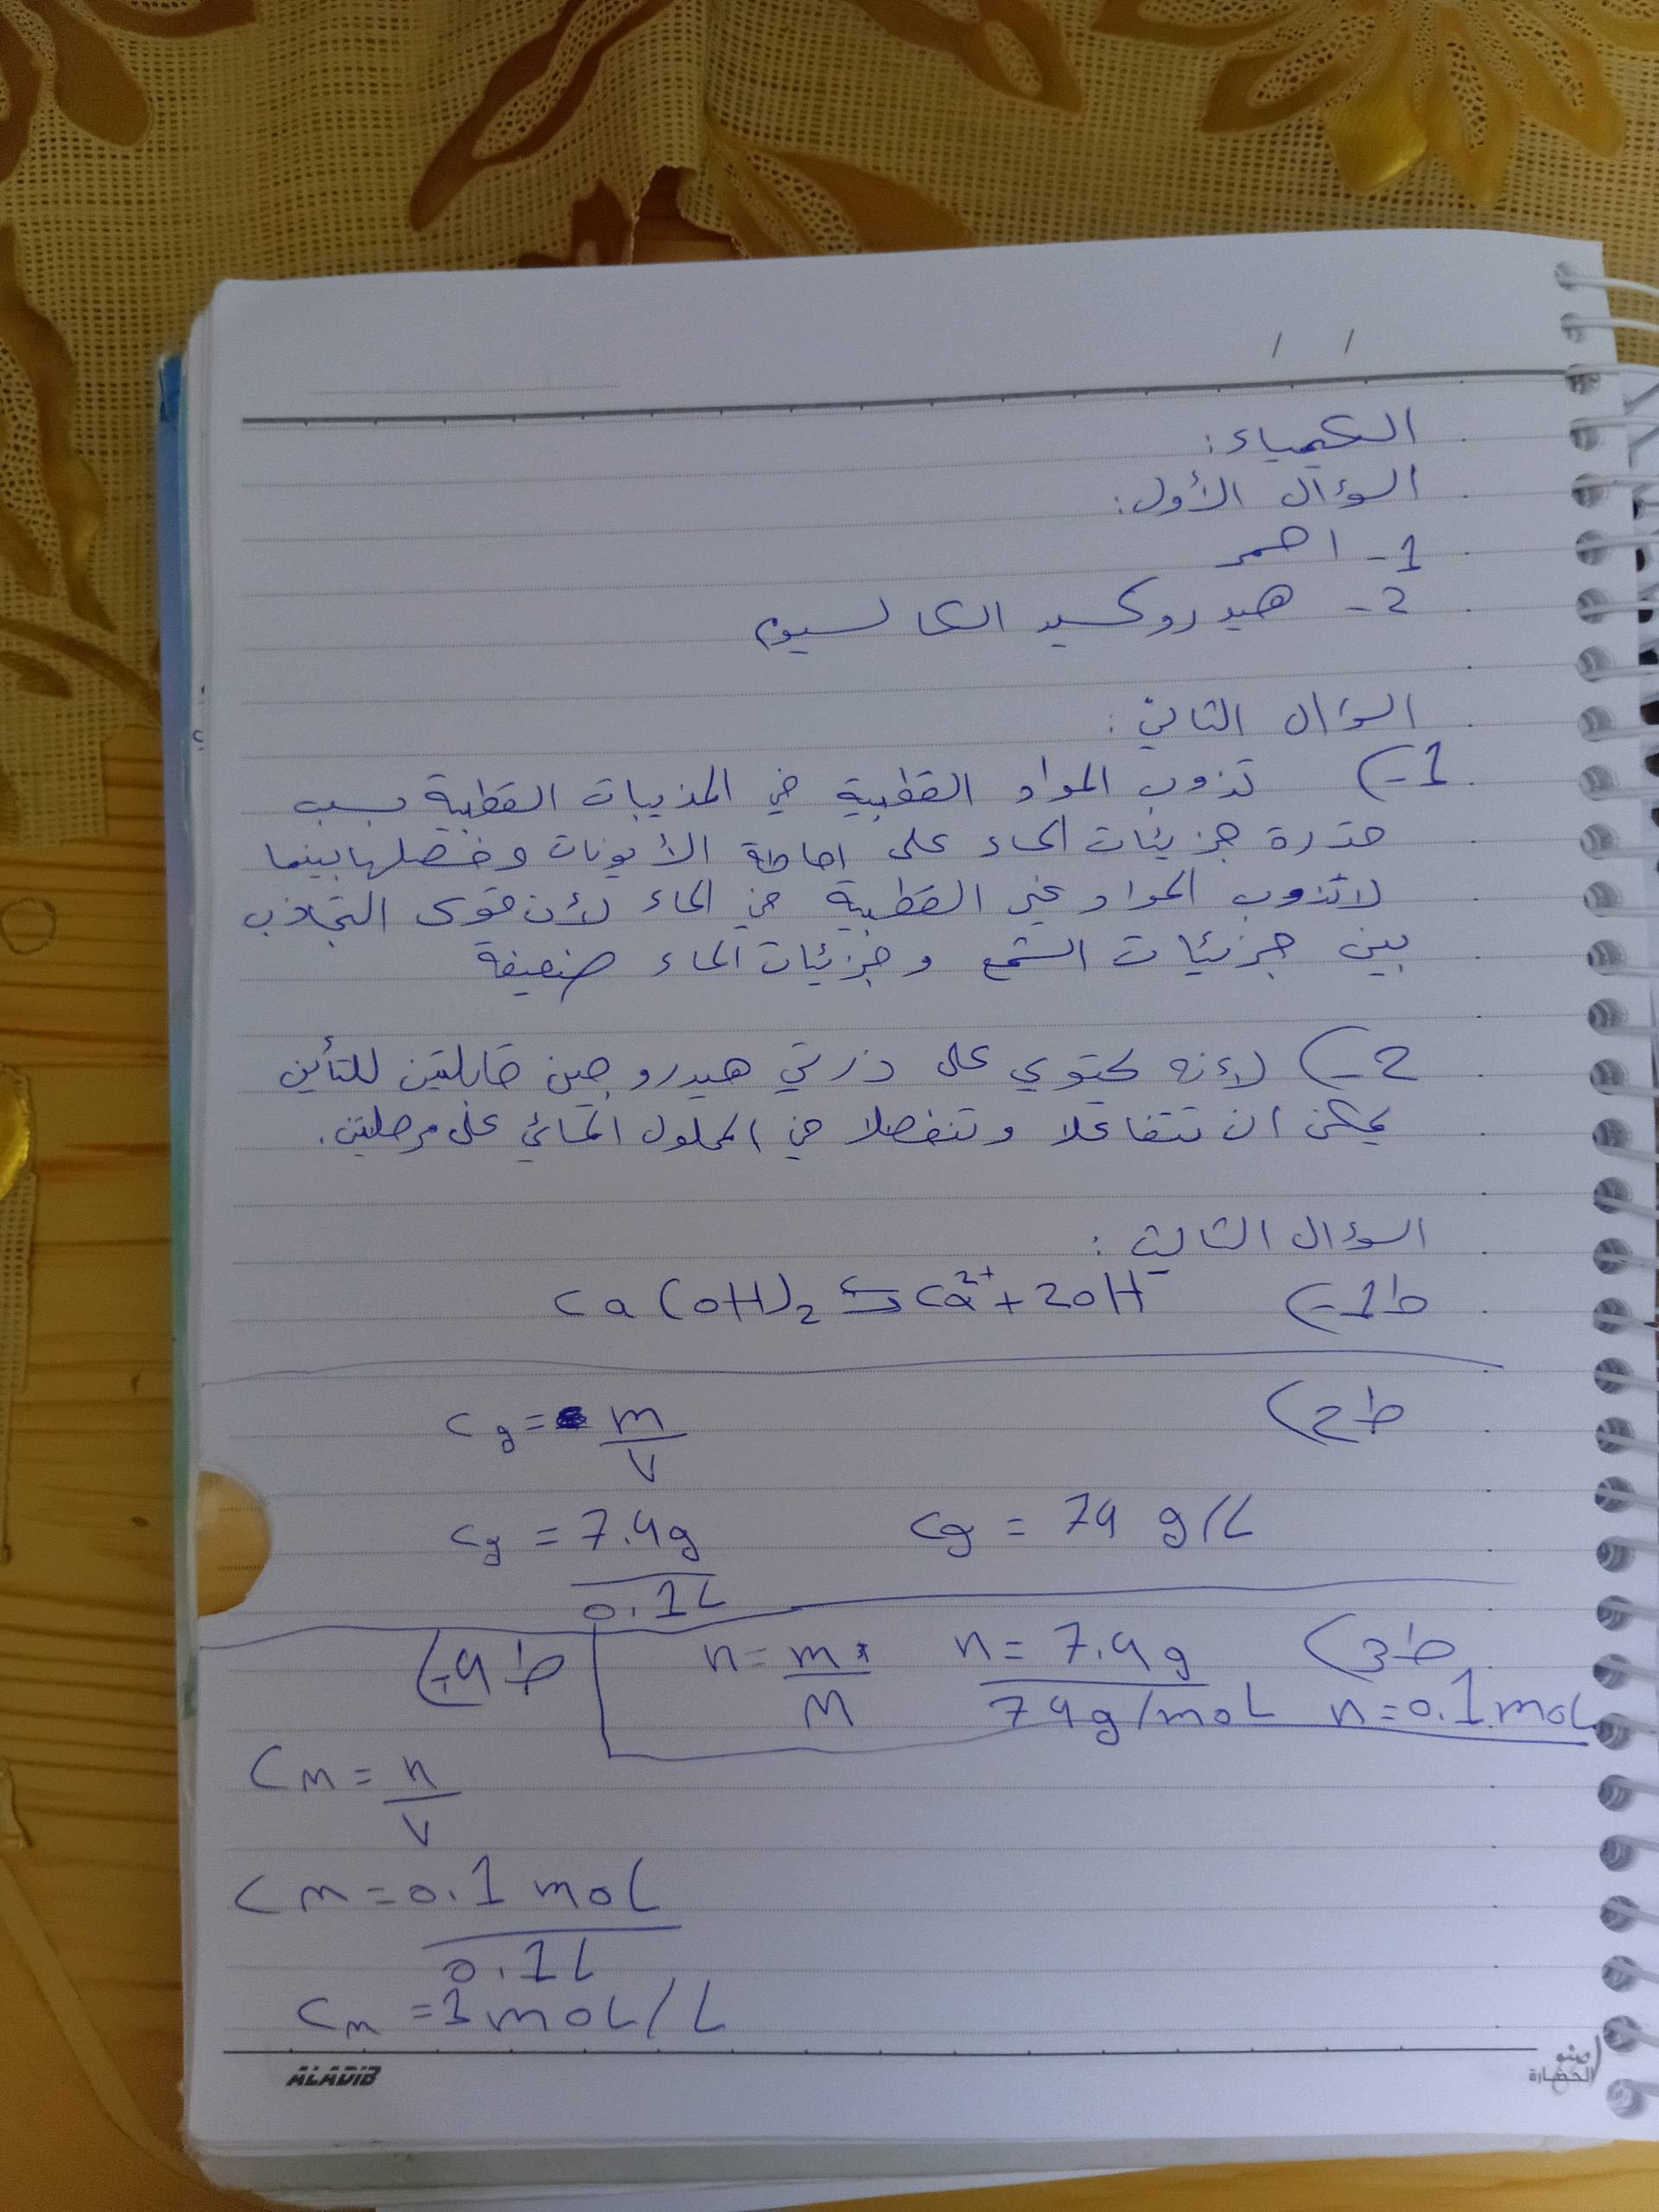 / /
الكيمياء:
السؤال الأول:
1- احمر
2- هيدروكسيد الكالسيوم
السؤال الثاني:
1-) تذوب المواد القطبية في المذيبات القطبية بسبب
قدرة جزيئات الماء على احاطة الأيونات وفصلها بينما
لاتذوب المواد غير القطبية في الماء لأن قوى التجاذب
بين جزئيات الشمع وجزئيات الماء ضعيفة
2-) لأنه يحتوي على ذرتي هيدروجين قابلتين للتأين
يمكن ان تتفاعلا وتنفصلا في المحلول المائي على مرحلتين.
السؤال الثالث:
ط1-) Ca(OH)₂ ⇆ Ca²⁺ + 2OH⁻
ط2)
Cg = m/V
Cg = 7.4g/0.1L Cg = 74 g/L
ط3) n = m/M n = 7.4g/74g/mol n = 0.1 mol
ط4-)
Cm = n/V
Cm = 0.1 mol/0.1L
Cm = 1 mol/L
ALADIB
الحضارة